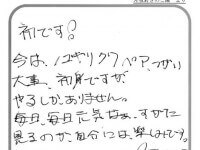 初です。
今は、ノコギリクワ ペア、つがい
大事、初身ですが、
やるしかありません。
毎日、毎日元気なぁ、すがた
見るのが、自分には、楽しみです。